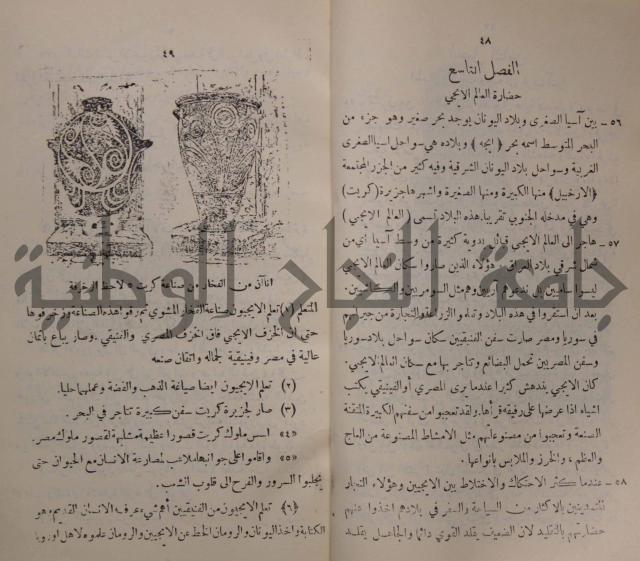 ٤٨
الفصل التاسع
حضارة العالم الايجي
٥٦ ـ بين آسيا الصغرى وبلاد اليونان يوجد بحر صغير وهو جزء من
البحر المتوسط اسمه بحر ( ايجه ) وبلاده هي سواحل اسيا الصغرى
الغربية وسواحل بلاد اليونان الشرقية وفيه كثير من الجزر المجتمعة
(الارخبيل) منها الكبيرة ومنها الصغيرة واشهرها جزيرة (كريت)
وهي في مدخله الجنوبي تقريبا. هذه البلاد تسمى ( العالم الايجي )
٥٧ ـ هاجر الى العالم الايجي قبائل بدوية كثيرة من وسط آسيا اي من
شمال شرقي بلاد العراق. هؤلاء الذين صاروا سكان العالم الايجي
ليسوا ساميين بل ندعوهم آريين وهم مثل السومريين والكاشيين.
بعد ان استقروا في هذه البلاد وتعلموا الزراعة والتجارة من جيرانهم
في سوريا ومصر صارت سفن الفنيقيين سكان سواحل بلاد سوريا
وسفن المصريين تحمل البضائع وتتاجر بها مع سكان العالم الايجي.
كان الايجي يندهش كثيرا عندما يرى المصري أو الفينيقي يكتب
اشياء اذا عرضها على رفيقه قرأها. ولقد تعجبوا من سفنهم الكبيرة المتقنة
الصنعة وتعجبوا من مصنوعاتهم مثل الامشاط المصنوعة من العاج
والعظم ، والخرز والملابس بانواعها.
٥٨ ـ عندما كثر الاحتكاك والاختلاط بين الايجيين وهؤلاء التجار
المتمدنين بالاكثار من السياحة والسفر في بلادهم اخذوا عنهم
حضارتهم بالتقليد لان الضعيف يقلد القوي دائما والجاهل يقلد
٤٩
اناآن من الفخار من صناعة كريت ، لاحظ الزخرفة
المتعلم (١) تعلم الايجيون صناعة الفخار المشوي ثم رقوا هذه الصناعة وزخرفوها
حتى ان الخزف الايجي فاق الخزف المصري والفنيقي . وصار يباع باثمان
عالية في مصر وفنيقية لجماله واتقان صنعه
(٢) تعلم الايجيون ايضا صياغة الذهب والفضة وعملهما حليا.
(٣) صار لجزيرة كريت سفن كبيرة تتاجر في البحر .
«٤» اسس ملوك كريت قصورا عظيمة مشابهة لقصور ملوك مصر.
«٥» واقاموا على جوانبها ملاعب لمصارعة الانسان مع الحيوان حتى
يجلبوا السرور والفرح الى قلوب الشعب.
(٦) تعلم الايجيون من الفنيقيين أهم شيء عرفه الانسان القديم وهو
الكتابة واخذ اليونان والرومان الخط عن الايجيين والرومان علموه لاهل اوروبا
جامعة النجاح الوطنية